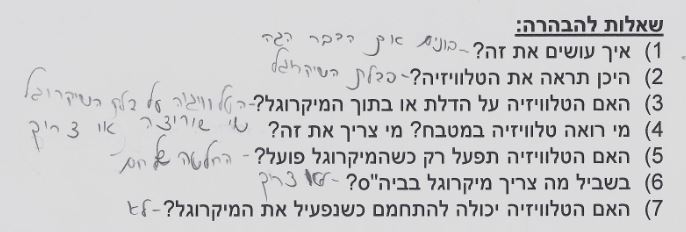 שאלות להבהרה:
1) איך עושים את זה? - בונים את הדבר הזה
2) היכן תראה את הטלוויזיה? - בדלת המיקרוגל
3) האם הטלוויזיה על הדלת או בתוך המיקרוגל? - הטלוויזיה על דלת המיקרוגל
4) מי רואה טלוויזיה במטבח? מי צריך את זה? - מי שרוצה או צריך
5) האם הטלוויזיה תפעל רק כשהמיקרוגל פועל? - החלטה של
6) בשביל מה צריך מיקרוגל בביה"ס? - לא צריך
7) האם הטלוויזיה יכולה להתחמם כשנפעיל את המיקרוגל? - לא